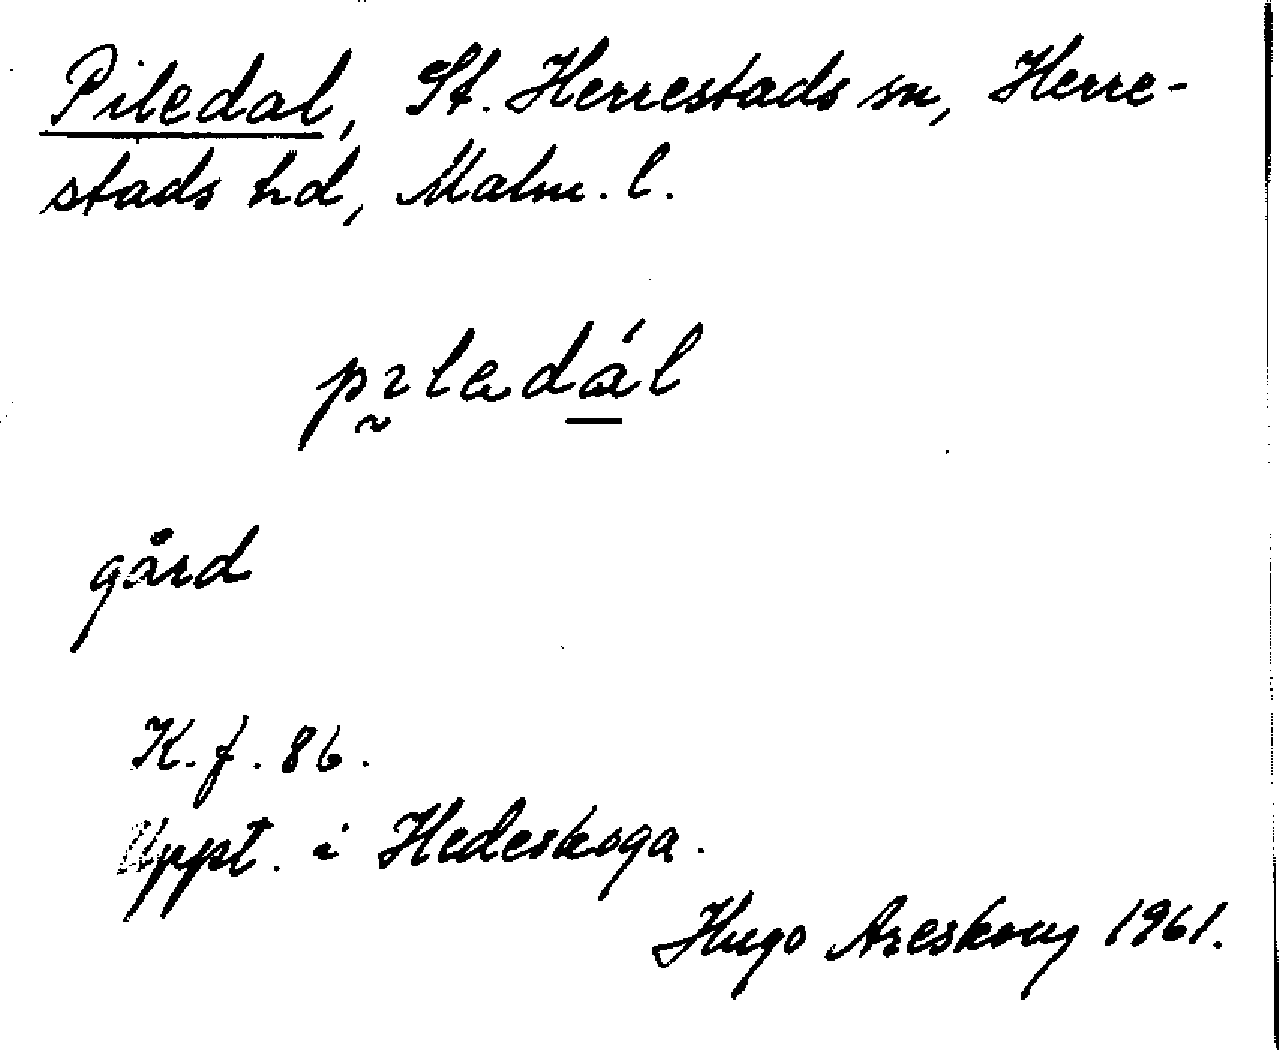 Piledal, St. Herrestads sn, Herre-
stads hd, Malm. l.
pɪ̰ladál
gård
K. f. 86.
Uppt. i Hedeskoga.
Hugo Areskoug 1961.